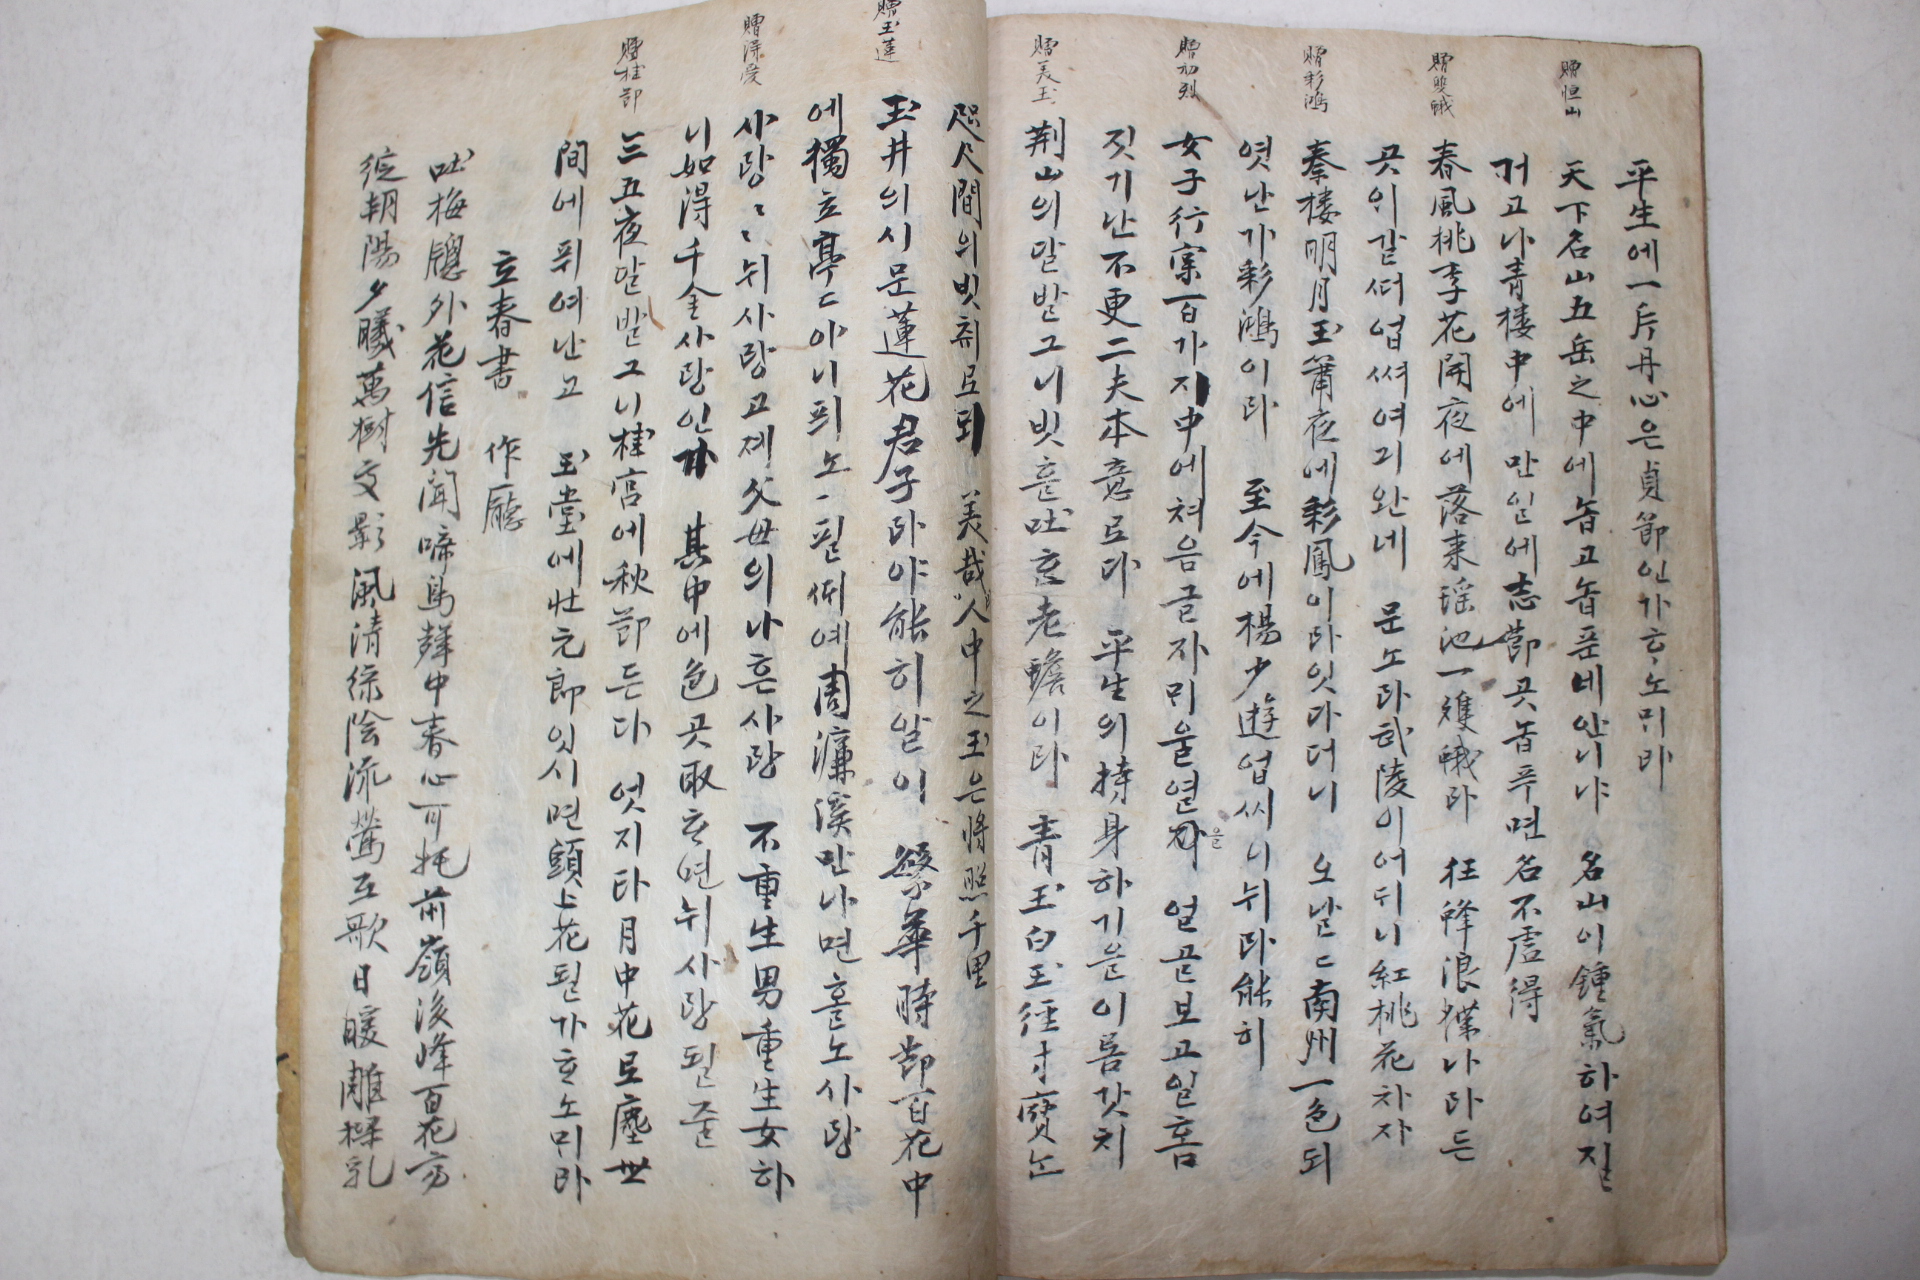 平生에一片丹心은貞節인가ᄒᆞ노ᄆᆡ라
贈恒山
天下名山五岳之中에놉고놉픈ᄇᆡ안니냐 名山이鍾氣하여질
거고나青樓中에만일에志節곳놉푸면名不虛得
贈雙蛾
春風桃李花開夜에落来瑤池一雙蛾라 狂蜂浪蝶나라든
곳이갈터업셔여긔완네 문노라武陵이어ᄃᆡ니紅桃花차자
贈彩鴻
秦樓明月玉簫夜에彩鳳이라잇다더니 오날ᄂᆞᆫ南州一色되
엿난가彩鴻이라 至今에楊少遊업씨니뉘라能히
贈初烈
女子行實百가지中에쳐음글자ᄆᆡ울열자을 얼골보고일홈
짓기난不更二夫本意로다 平生의持身하기을이름갓치
贈美玉
荆山의달발그니빗흘吐ᄒᆞᆫ老蟾이라 青玉白玉徑寸寶ᄂᆞᆫ
咫尺間의빗최로되 美哉人中之玉은將照千里
贈玉蓮
玉井의시문蓮花君子라야能히알이 繁華時節百花中
에獨立亭亭아니픠노 필연예周濂溪만나면흘노사랑
贈得愛
사랑사랑뉘사랑고졔父母의나흔사랑 不重生男重生女하
니如得千金사랑인가 其中에色곳取ᄒᆞ면뉘사랑될줄
贈桂節
三五夜달발그니桂宮에秋節든다 엇지타月中花로塵世
間에퓌여난고 玉堂에壯元郎잇시면頭上花될가ᄒᆞ노ᄆᆡ라
立春書 作廳
吐梅牕外花信先聞啼鳥聲中春心可托前嶺後峰百花方
綻朝陽夕曦萬樹交影風清綠陰流鶯互歌日暖雕樑乳